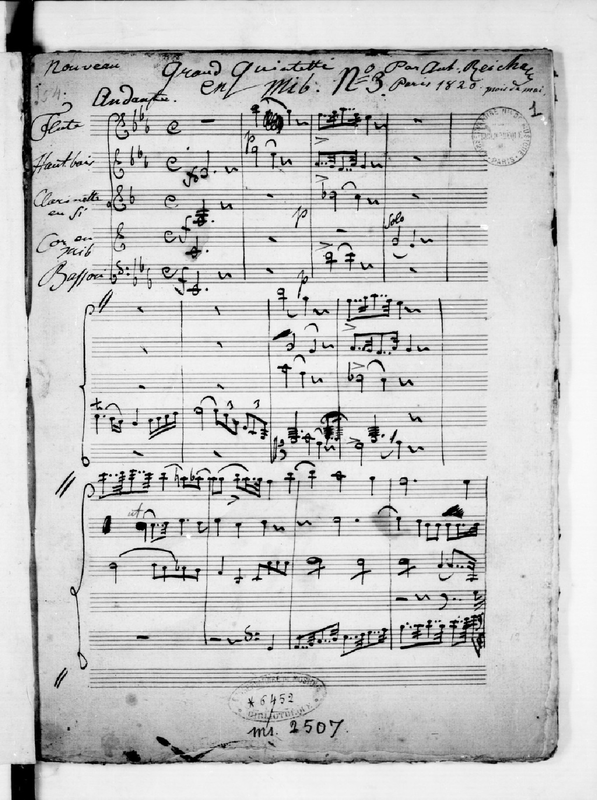 Nouveau Grand Quintetti Nº 3. Par Ant. Reicha
en Mib. Paris 1820. mois de mai
34.
Andante.
1
Flute
Hautbois
p
Clarinette
en si
p
Solo
Cor en
mib
Basson
p
3 3
ut
BIBLIOTHEQUE
* 6452
ms. 2507.